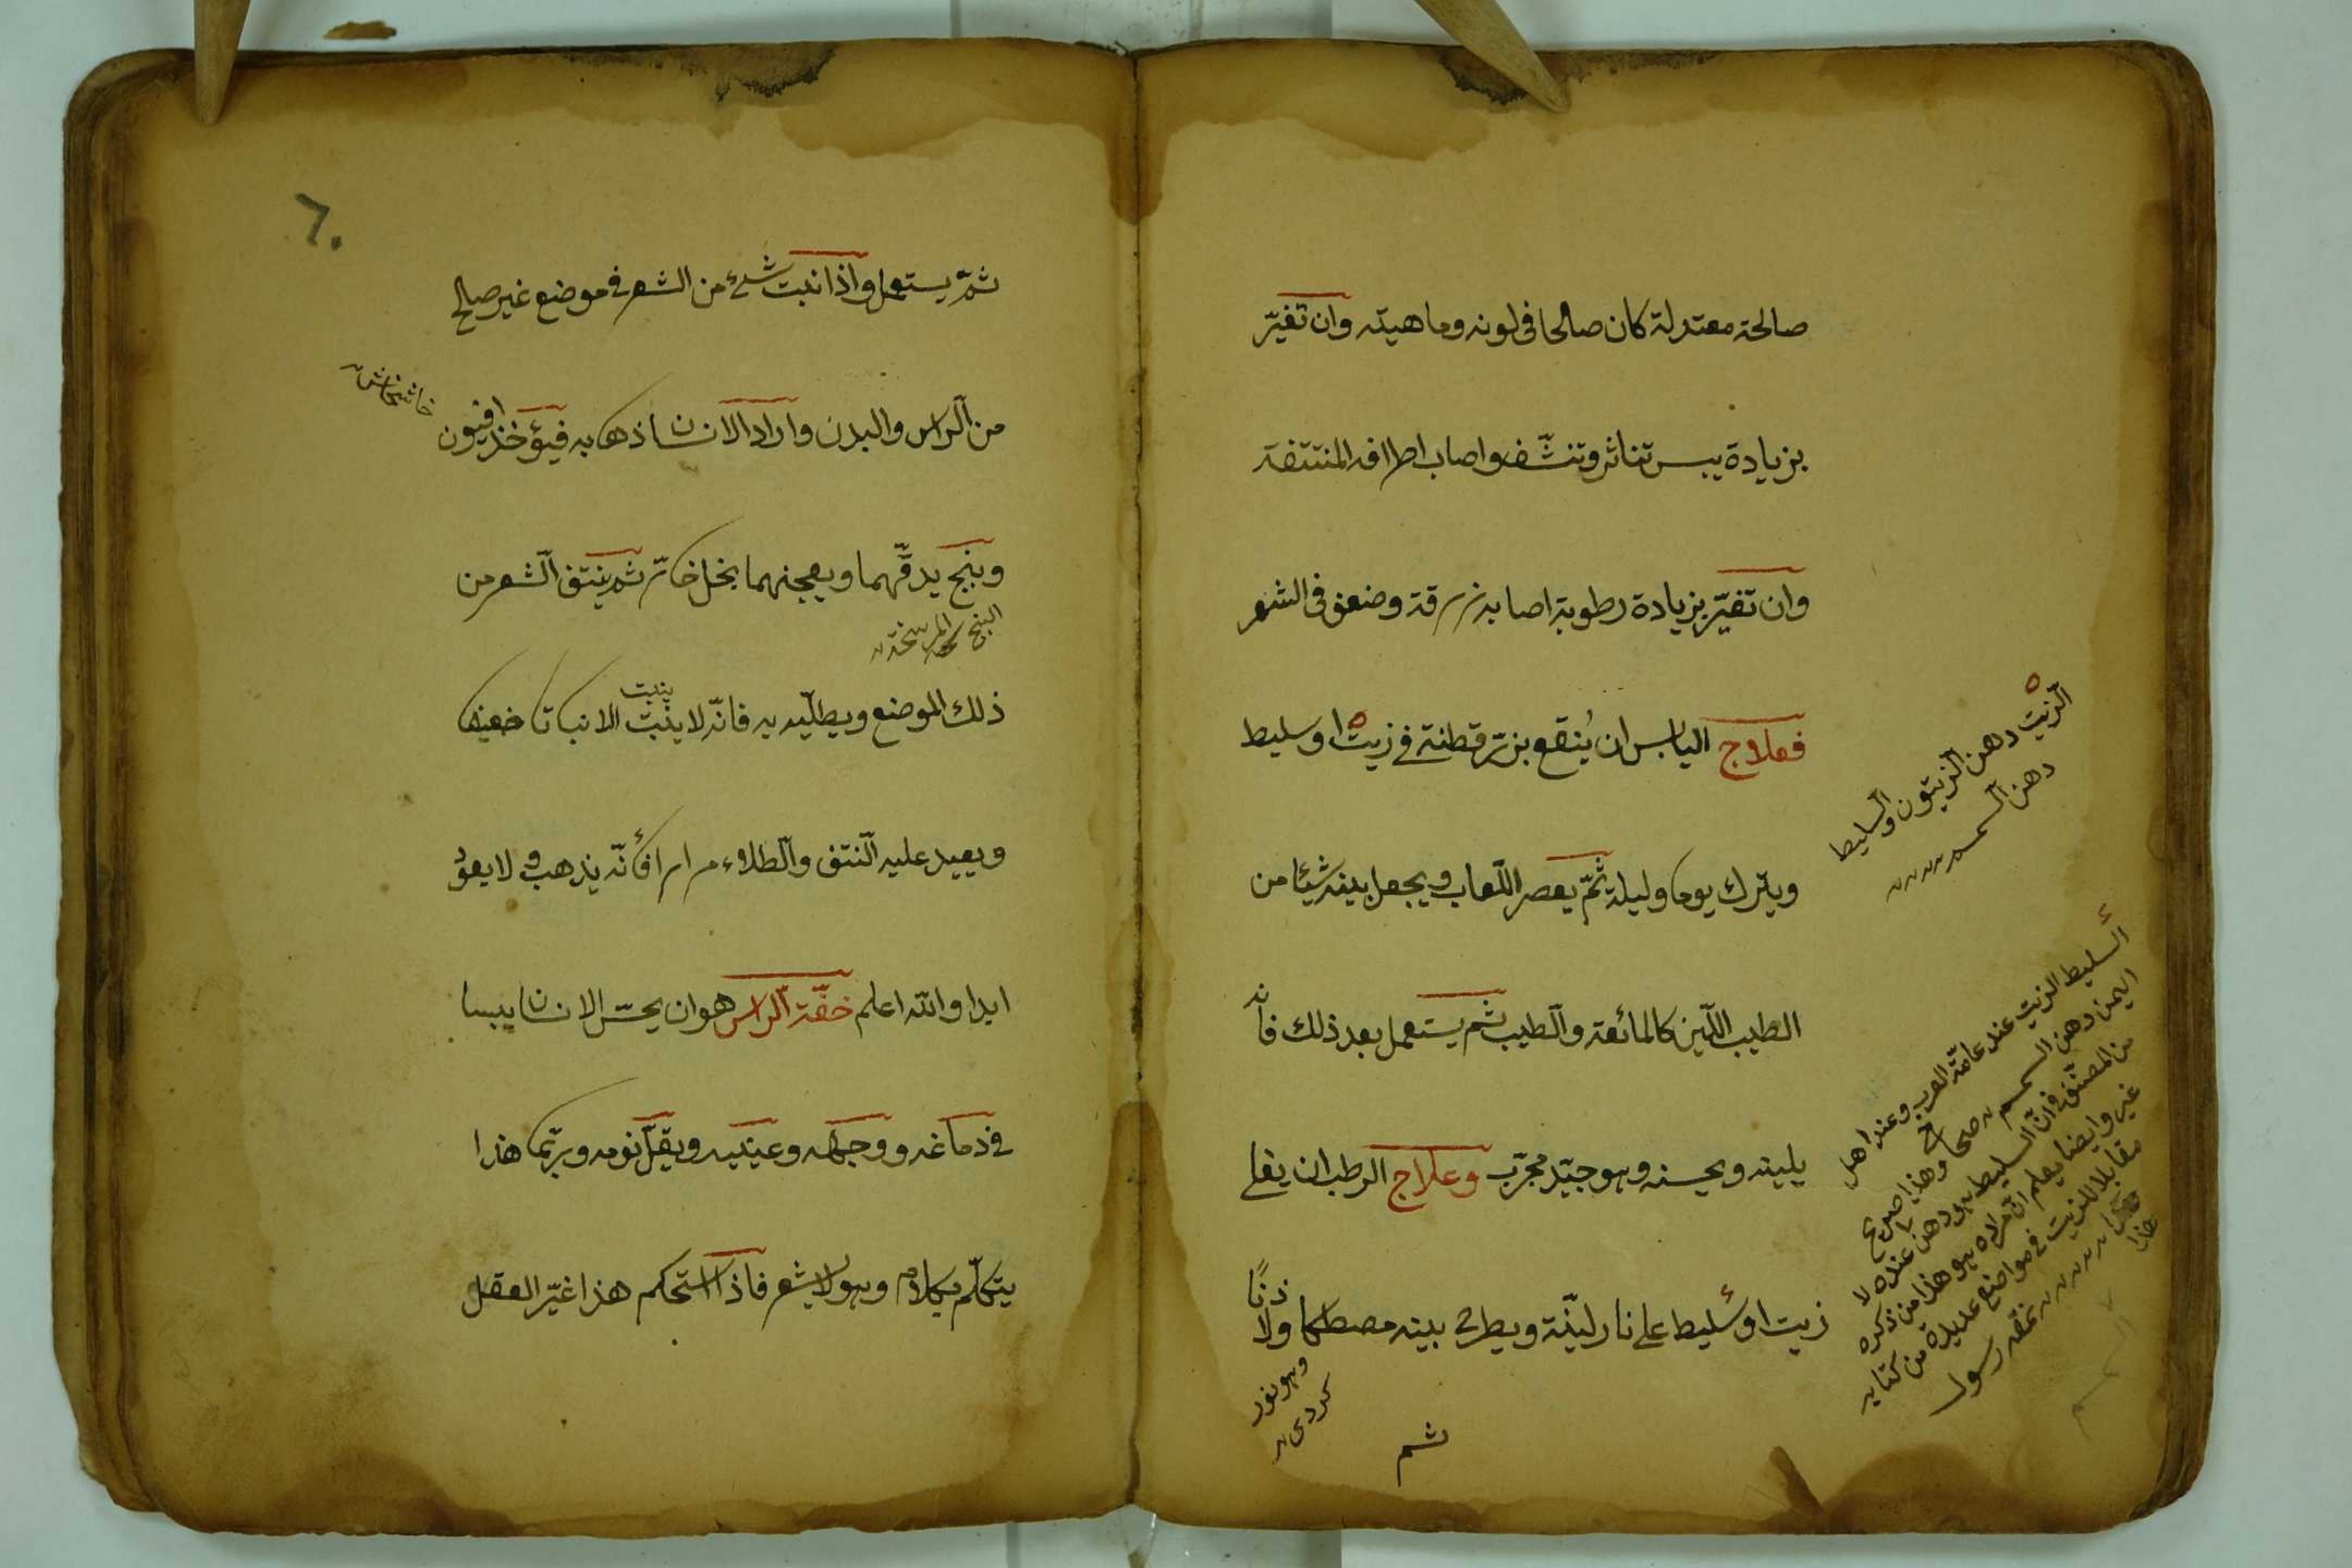 صالحة معتدلة كان صالحا في لونه وماهيته وان تغيّر
بزيادة يبس تناثر وتنشّف واصاب اطرافه المنتتفة
وان تغيّر بزيادة رطوبة اصابه رقة وضعف في الشعر
فعلاج اليابس ان يُنقع بزر قطنة في زيت او سليط
ويترك يوما وليلة ثمّ يعصر اللّعاب ويجعل بينه شيئا من
الطيب اللّين كالمائعة والطيب ثم يستعمل بعد ذلك فانه
يلينه ويحسنه وهو جيّد مجرّب وعلاج الرطب ان يغلي
زيت او سليط على نار ليّنة ويطرح بينه مصطكا ولاذنًا
ثم
الزيت دهن الزيتون والسليط
دهن السمسم
السليط الزيت عند عامّة العرب وعند اهل
اليمن دهن السمسم صحاح وهذا صريح
من المصنّف في انّ السليط هو دهن عنده لا
غير وايضا يعلم انّ مراده هو هذا من ذكره
مقابلا للزيت في مواضع عديدة من كتابه
هذا
نمقه رسول
كردى
٦٠
ثمّ يستعمل واذا نبت شيء من الشعر في موضع غير صالح
من الراس والبدن واراد الانسان اذهابه فيؤخذ افيون
خاشخاش
وبنج يدقّهما ويعجنهما بخل خاثر ثم ينتف الشعر من
البنج
ذلك الموضع ويطليه به فانّه لا ينبت الا نباتا ضعيفا
ينبت
ويعيد عليه النتف والطلاء مرارا فأنّه يذهب ولا يعود
ابدا والله اعلم خفّة الراس هو ان يحسّ الانسان يبسا
في دماغه ووجهه وعينيه ويقلّ نومه وربّما هذا
يتكلّم بكلام وهو لا يشعر فاذا استحكم هذا غيّر العقل